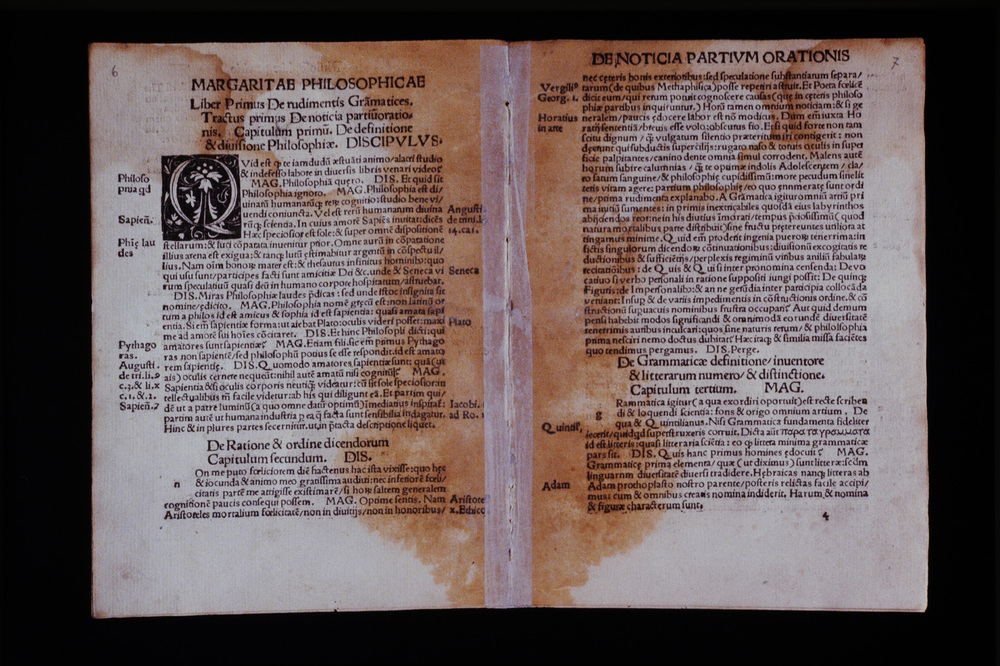 6
MARGARITAE PHILOSOPHICAE
Liber Primus De rudimentis Grãmatices.
Tractus primus De noticia partiũ oratio-
nis. Capitulum primũ. De definitione
& diuisione Philosophiæ. DISCIPVLVS.
QVid est qđ te iamdudũ æstuãti animo/alacri studio
& indefesso labore in diuersis libris venari videor
MAG. Philosophiã quero. DIS. Et quid sit
Philosophia ignoro. MAG. Philosophia est di/
uinanũ humanarũqȝ rerũ cognitio: studio bene vi/
uendi coniuncta. Vel est rerũ humanarum diuina
rũqȝ scientia. In cuius amorẽ Sapiẽs inuitat: dicẽs
Hæc speciosior est sole: & super omnẽ dispositionẽ
stellarum: & luci cõparata inuenitur prior. Omne aurũ in cõparatione
illius arena est exigua: & tanqȝ lutũ estimabitur argentũ in cõspectu il/
lius. Nam oĩm bonoȝ mater est: & thesaurus infinitus hominibo: quo
qui vsi sunt/participes facti sunt amicitiæ Dei &c. vnde & Seneca vi
rum speculatiuũ quasi deũ in humano corpore hospitatum/astruebat.
DIS. Miras Philosophiæ laudes pdicas: sed vnde istoc insignita sit
nomine/edicito. MAG. Philosophia nomẽ grecũ est: non latinũ or
tum a philos id est amicus & sophia id est sapientia: quasi amata sapi
entia. Si em sapientiæ forma: ut aiebat Plato: oculis videri posset: maxi
me ad amorẽ sui hoĩes cõcitaret. DIS. Et hinc Philosophi dicti: qui
amatores sunt sapientiæ? MAG. Etiam fili. Sic em primus Pythago
ras non sapientẽ/sed philosophũ potius se esse respondit: id est amato
rem sapientiæ. DIS. Quomodo amatores sapientiæ sunt: quã (ut
ais) oculis cernere nequeũt: nihil autẽ amatũ nisi cognitũ? MAG.
Sapientia & si oculis corporis neutiqȝ videatur: eũ sit sole speciosior: in
tellectualibus tñ facile videtur: ab his qui diligunt eã. Et partim qui/
dẽ ut a patre luminũ (a quo omne datũ optimũ) imedianus inspirat:
partim autẽ ut humana industria p ea qȝ facta sunt sensibilia indagatur.
Hinc & in plures partes secernitur. ut in ptacta descriptione liquet.
De Ratione & ordine dicendorum
Capitulum secundum. DIS.
On me puto fœliciorem diẽ fractenus hac ista vixisse: quo hęc
& iocunda & animo meo gratissima audiui: nec inferiorẽ fœli/
citatis partẽ me attigisse existimarẽ/si horȝ saltem generalem
cognitionẽ paucis consequi possem. MAG. Optime sentis. Nam
Aristoteles mortalium fœlicitatẽ/non in diuitijs/non in honoribus/
Philoso
phia qd
Sapien.
Phię lau
des
Pythago
ras.
Augusti.
de tri.li.
Sapien.
n
Angusti
Seneca
Plato
Iacobi.
ad Ro. 1
Aristote
x.Ethico
7
DE NOTICIA PARTIVM ORATIONIS
nec ceteris bonis exterioribus: sed speculatione substantiarum separa/
tarum (de quibus Methaphisica) posse reperiri astruit. Et Poeta fœlicẽ
dicit eum/qui rerum ponit cognoscere causas (quę in ceteris philoso
phiæ partibus inquiruntur.) Horũ tamen omnium noticiam: & si ge
neralem/paucis edocere labor est nõ modicus. Dum em iuxta Ho
ratij sententiã/breuis esse volo: obscurus fio. Et si quid forte non tam
scitu dignum/qȝ vulgatum silentio præterierim: ri contigerit: non
deerunt qui subductis supercilijs: rugato naso & toruis oculis in super
ficie palpitantes/canino dente omnia simul corrodent. Malens autẽ
horum subire calumnias/qȝ te optimæ indolis Adolescentem/cla/
ro satum sanguine/& philosophiȩ cupidissimũ: more pecudum sineli
teris vitam agere: partium philosophiȩ/eo quo ennmeratę sunt ordi
ne/prima rudimenta explanabo. A Grãmatica igitur omniũ artiũ pri
ma initiũ sumentes: in primis inextricabiles quosdã eius labyrinthos
abijciendos reor: ne in his diutius imorati/tempus preciosissimũ (quod
natura mortalibus parte distribuit) sine fructu pretereuntes vniliora at
tingamus minime. Quid em proderit ingenia pueroȝ tenerrima in
factis singulorum dicendoȝ cõtinuationibus: diuisionũ excogitatis re
ductionibus & sufficiẽtijs/perplexis regiminũ viribus anilitũ fabulatȝ
recitatiõibus: de Quis & Qui si inter pronomina censenda: De vo
catiuo si verbo personali in ratione suppositi iungi possit: De quinqȝ
Figuris: de Impersonalibo: & an ne gerũdia inter participia collocãda
veniant: Insup & de varijs impedimentis in cõstructionis ordine. & cõ
structionũ fugacuis nominibus frustra occupari? Aut quid demum
pensi habebit modos significandi & omnimodã eorundẽ diuersitatẽ
tenerrimis auribus inulcari: quos sine naturis rerum/& philosophia
prima nesciri nemo doctus dubitat? Hæc itaqȝ & similia missa faciẽtes
quo tendimus pergamus. DIS. Perge.
De Grammaticæ definitione/inuentore
& litterarum numero/& distinctione.
Capitulum tertium. MAG.
Rammatica igitur (a qua exordiri oportuit) est recte scriben
di & loquendi scientia: fons & origo omnium artium. De
qua & Quintilianus. Nisi Grammatica fundamenta fideliter
iecerit/quidqd superstruxeris corruit. Dicta aũt παρα τα γραμματα
id est litteris: quasi litteraria sciẽtia: eo qȝ littera minima grammaticæ
pars sit. DIS. Quis hanc primus homines edocuit? MAG.
Grammaticę prima elementa/quæ (ut diximus) sunt litteræ: scdm
linguarum diuersitatẽ diuersi tradidere. Hebraicas nanqȝ litteras ab
Adam prothoplasto nostro parente/posteris relictas facile accipi/
mus: cum & omnibus creatis nomina indiderit. Harum & nomina
& figuræ characterum sunt.
4
Vergili9
Georg. 1.
Horatius
in arte
g
Quintil.
Adam